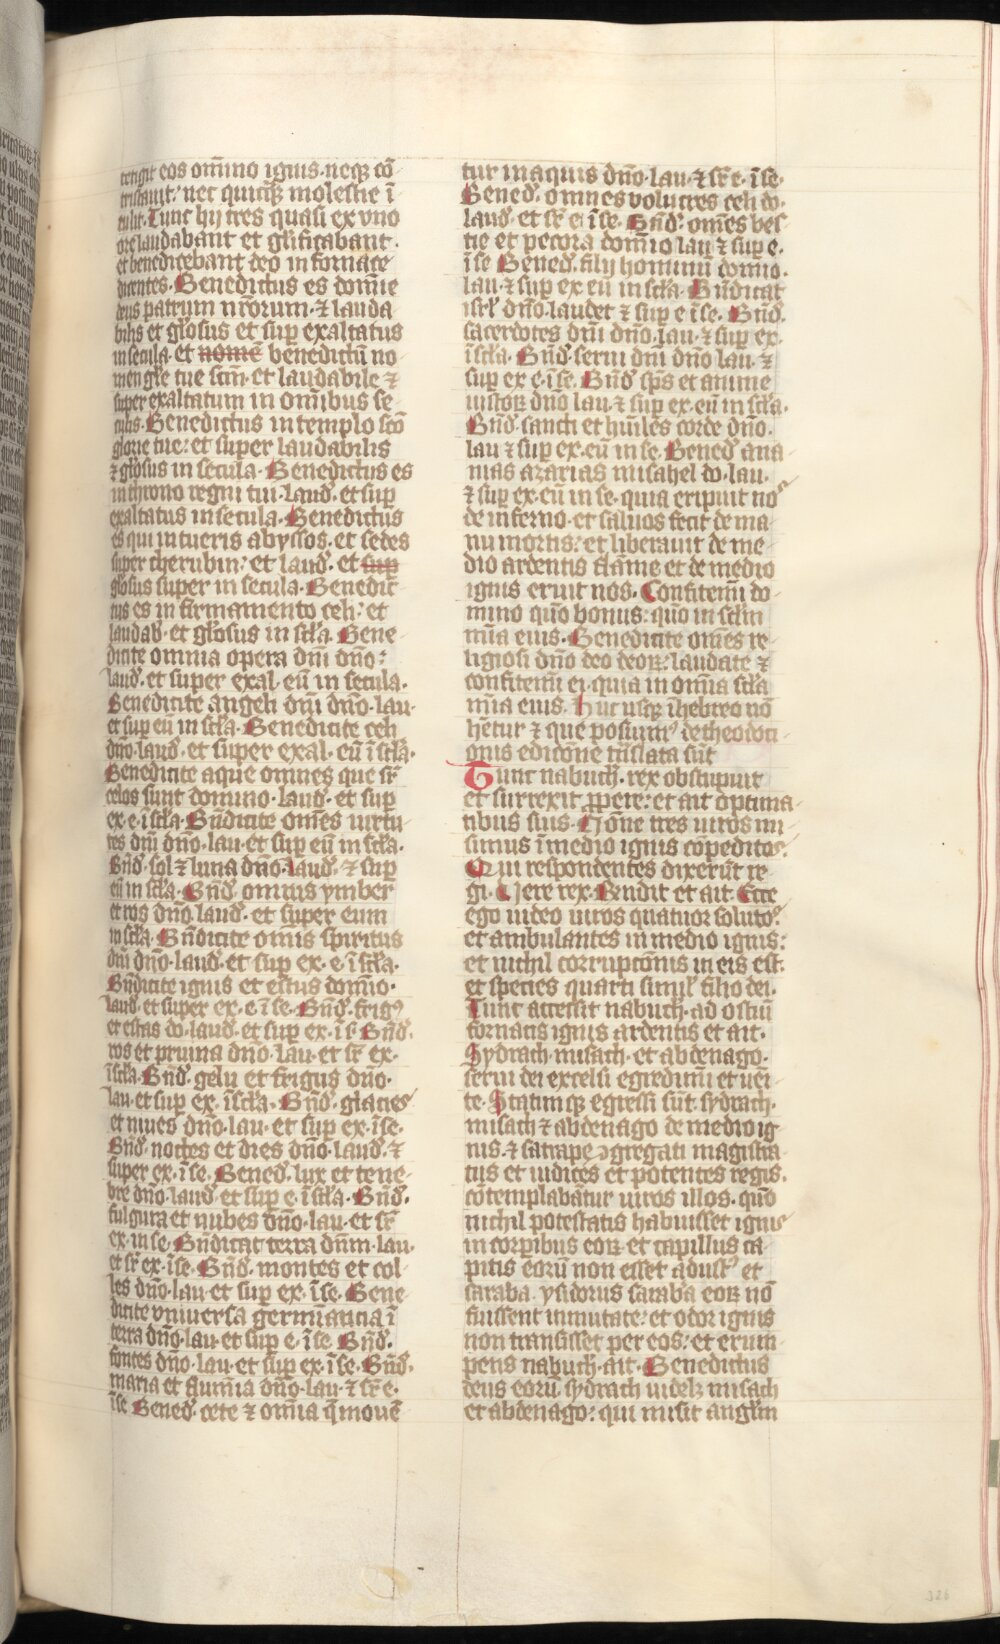 tetigit eos om̅ino ignis· neqꝫ co̅
tristauit: nec quicqꝫ molestie i̅
tulit· Tunc hij tres quasi ex vno
ore laudabant et gl̅ificabant·
et benedicebant deo in fornace
dicentes· Benedictus es domi̅e
deus patrum nr̅orum· ⁊ lauda
bilis et gl̅osus et suꝑ exaltatus
in secula· et nome̅ benedictu̅ no
men gl̅ie tue sc̅m· et laudabile ⁊
super exaltatum in om̅ibus se
culis· Benedictus in templo sc̅o
glorie tue: et super laudabilis
⁊ gl̅osus in secula· Benedictus es
in throno regni tui· laud̅· et suꝑ
exaltatus in secula· Benedictus
es qui intueris abyssos· et sedes
super cherubin: et laud̅· et suꝑ
gl̅osus super in secula· Benedic̅
tus es in firmamento celi: et
laudab̅· et gl̅osus in sc̅la· Bene
dicite omnia opera dn̅i dn̅o:
laud̅· et super exal· eu̅ in secula·
Benedicite angeli dn̅i dn̅o· lau·
et suꝑ eu̅ in sc̅la· Benedicite celi
dn̅o· laud̅· et super exal· eu̅ i̅ sc̅la·
Benedicite aque omnes que sr̅
celos sunt domino· laud̅· et suꝑ
ex· e· i̅ sc̅la· Bn̅dicite om̅es uirtu
tes dn̅i dn̅o· lau· et suꝑ eu̅ in sc̅la·
Bn̅d̅· sol ⁊ luna dn̅o· laud̅· ⁊ suꝑ
eu̅ in sc̅la· Bn̅d̅· omnis ymber
et ros dn̅o· laud̅· et super eum
in sc̅la· Bn̅dicite om̅is spiritus
dn̅i dn̅o· laud̅· et suꝑ ex· e· i̅ sc̅la·
Bn̅dicite ignis et estus domi̅o·
laud̅· et super ex· e· i̅ se· Bn̅d̅· frigꝰ
et estas do· laud̅· et suꝑ ex· i̅ s̅· Bn̅d̅·
ros et pruina dn̅o· lau· et sr̅ ex·
i̅ sc̅la· Bn̅d̅· gelu et frigus dn̅o·
lau· et suꝑ ex· i̅ sc̅la· Bn̅d̅· glacies
et niues dn̅o· lau· et suꝑ ex· i̅ se·
Bn̅d̅· noctes et dies dn̅o· laud̅· ⁊
super ex· i̅ se· Bened̅· lux et tene
bre dn̅o· laud̅· et suꝑ e· i̅ sc̅la· Bn̅d̅·
fulgura et nubes dn̅o· lau· et sr̅
ex· in se· Bn̅dicat terra dn̅m· lau·
et sr̅ ex· i̅ se· Bn̅d̅· montes et col
les dn̅o· lau· et suꝑ ex· i̅ se· Bene
dicite vniuersa germi̅ancia i̅
terra dn̅o· lau· et suꝑ e· i̅ se· Bn̅d̅·
fontes dn̅o· lau· et suꝑ ex· i̅ se· Bn̅d̅·
maria et flumi̅a dn̅o· lau· ⁊ sr̅ e·
i̅ se· Bened̅· cete ⁊ om̅ia q̅ moue̅
tur in aquis dn̅o· lau· ⁊ sr̅ e· i̅ se·
Bened̅· omnes volucres celi do·
laud̅· et sr̅ e· i̅ se· Bn̅d̅· om̅es bes
tie et pecora domi̅o lau ⁊ suꝑ e·
i̅ se Bened̅· filij hominu̅ domi̅o·
lau· ⁊ suꝑ ex eu̅ in sc̅la· Bn̅dicat
isrl̅ dn̅o· laudet ⁊ suꝑ e i̅ se· Bn̅d̅·
sacerdotes dn̅i dn̅o· lau· ⁊ suꝑ ex·
i̅ sc̅la· Bn̅d̅· serui dn̅i dn̅o lau· ⁊
suꝑ ex e· i̅ se· Bn̅d̅ sp̅s et anime
iustoꝝ dn̅o lau· ⁊ suꝑ ex· eu̅ in sc̅la·
Bn̅d̅· sancti et hu̅iles corde dn̅o·
lau ⁊ suꝑ ex· eu̅ in se· Bened̅ ana
nias azarias misahel do· lau·
⁊ suꝑ ex· eu̅ in se· quia eripuit nos
de inferno· et saluos fecit de ma
nu mortis: et liberauit de me
dio ardentis fla̅me et de medio
ignis eruit nos· Confitemi̅ do
mino quo̅ bonus: quo̅ in sc̅lm
mi̅a eius· Benedicite om̅es re
ligiosi dn̅o deo deoꝝ: laudate ⁊
confitemi̅ ei· quia in om̅ia sc̅la
mi̅a eius· Huc usqꝫ i̅ hebreo no̅
he̅tur ⁊ que posuimꝰ de theodoti
onis edic̅one tra̅slata su̅t
Tunc nabuch̅· rex obstupuit
et surrexit ꝓpere: et ait optima
tibus suis· No̅ne tres uiros mi
simus i̅ medio ignis co̅peditos·
Qui respondentes dixeru̅t re
gi· Uere rex· Rn̅dit et ait· Ecce
ego uideo uiros quatuor solutos
et ambulantes in medio ignis:
et nichil corrupc̅onis in eis est:
et species quarti simil̅ filio dei·
Tunc accessit nabuch̅· ad ostiu̅
fornacis ignis ardentis et ait·
Sydrach misach· et abdenago·
serui dei excelsi egredimi̅ et ueni
te· Statimqꝫ egressi su̅t· sydrach·
misach ⁊ abdenago de medio ig
nis· ⁊ satrape ꝯgregati magistra
tus et iudices et potentes regis·
co̅templaba̅tur uiros illos· quo̅
nichil potestatis habuisset ignis
in corꝑibus eoꝝ· et capillus ca
pitis eoru̅ non esset adustꝰ et
saraba· ysidorus saraba eoꝝ no̅
fuissent inmutate: et odor ignis
non transisset per eos: et erum
pens nabuch̅· ait· Benedictus
deus eoru̅ sydrach uidelꝫ misach
et abdenago: qui misit angl̅m
326